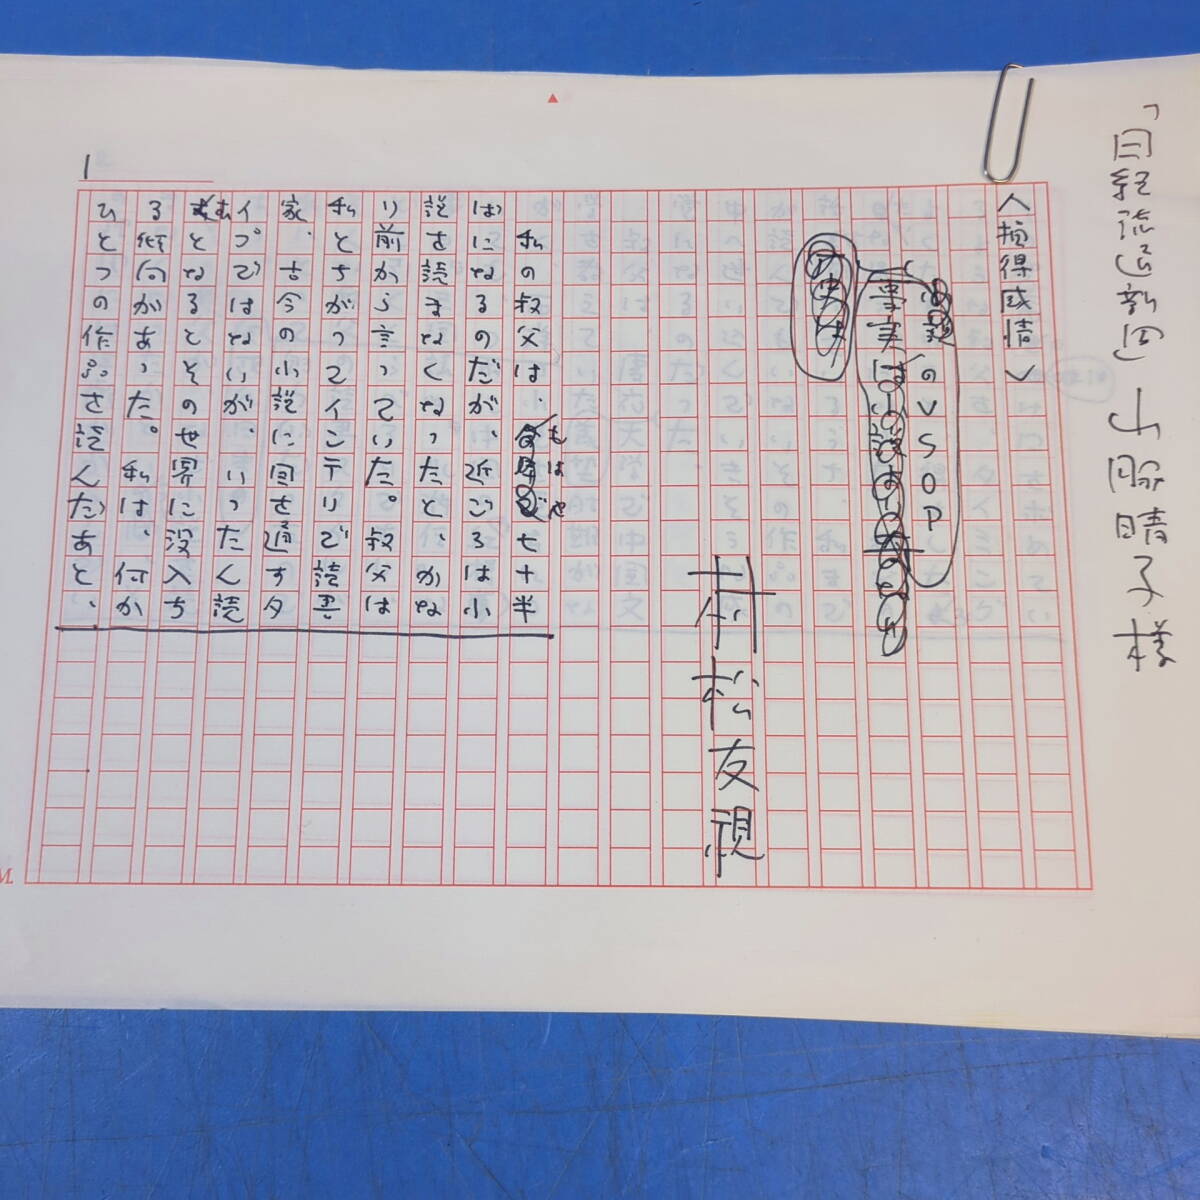 「日経流通新聞」 山脇晴子様
〈損得感情〉
のVSOP
事実は
村松友視
1
私の叔父は、もはや七十半
ばになるのだが、近ごろは小
説を読まなくなったと、かな
り前から言っていた。叔父は
私とちがってインテリで読書
家、古今の小説に目を通すタ
イプではないが、いったん読
むとなるとその世界に没入す
る術向があった。私は、何か
ひとつの作品を読んだあと、